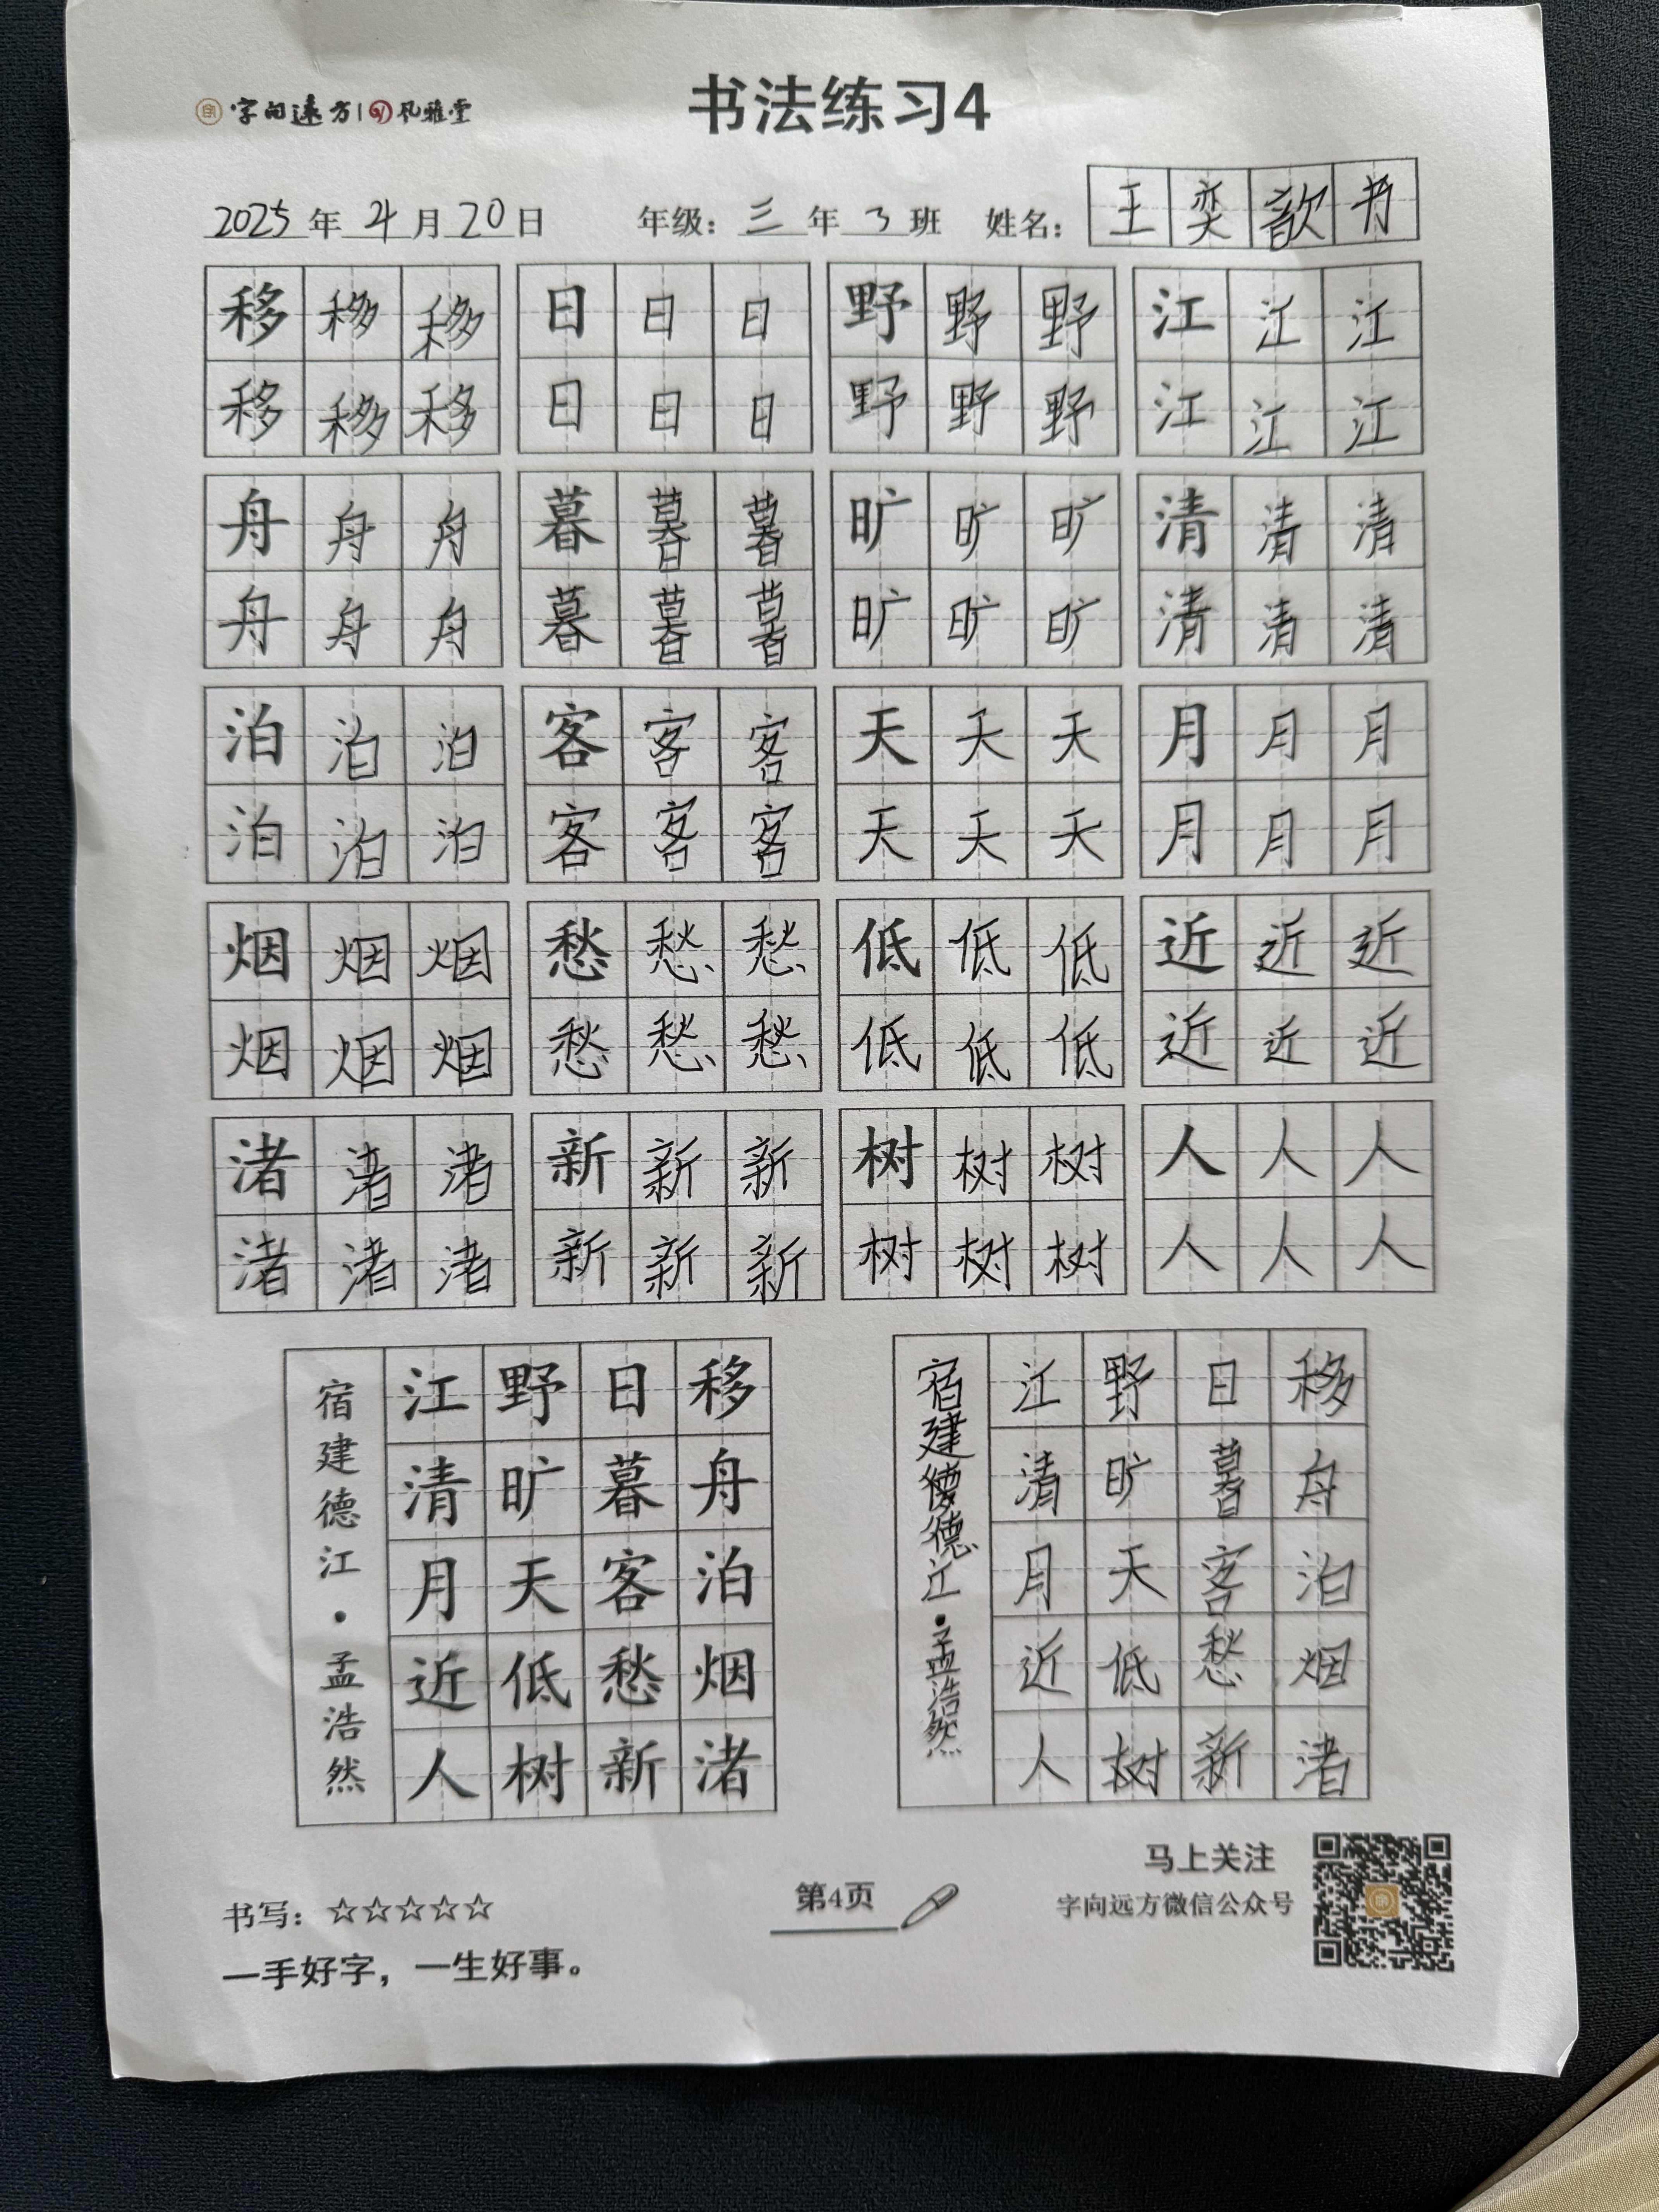 字向远方 | 风雅堂
书法练习4
2025年4月20日 年级：三年3班 姓名：王奕歆书
移移移 日日日 野野野 江江江
移移移 日日日 野野野 江江江
舟舟舟 暮暮暮 旷旷旷 清清清
舟舟舟 暮暮暮 旷旷旷 清清清
泊泊泊 客客客 天天天 月月月
泊泊泊 客客客 天天天 月月月
烟烟烟 愁愁愁 低低低 近近近
烟烟烟 愁愁愁 低低低 近近近
渚渚渚 新新新 树树树 人人人
渚渚渚 新新新 树树树 人人人
移舟泊烟渚
日暮客愁新
野旷天低树
江清月近人
宿建德江·孟浩然
移舟泊烟渚
日暮客愁新
野旷天低树
江清月近人
宿建德江·孟浩然
书写：☆☆☆☆☆
一手好字，一生好事。
第4页
马上关注
字向远方微信公众号